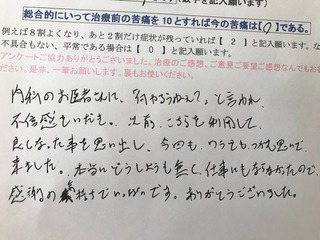 (数字を記入願います)
総合的にいって治療前の苦痛を10とすれば今の苦痛は【0】である。
例えば8割よくなり、あと2割だけ症状が残っていれば【 2 】と記入願います。な
不具合もなく、平常である場合は【 0 】と記入願います。
アンケートご協力ありがとうございました。治療のご感想、ご意見ご要望ご感想なんでもお
是非、一筆お願いします。裏もお使いください。
内科のお医者さんに、「何やろうかえ?」と言われ
不信感をいだき。以前、こちらを利用して、
良くなった事を思い出し、今回も、わらをもつかむ思いで
来ました。本当にどうしようも無く、仕事にもならなかったので、
感謝の気持ちでいっぱいです。ありがとうございました。